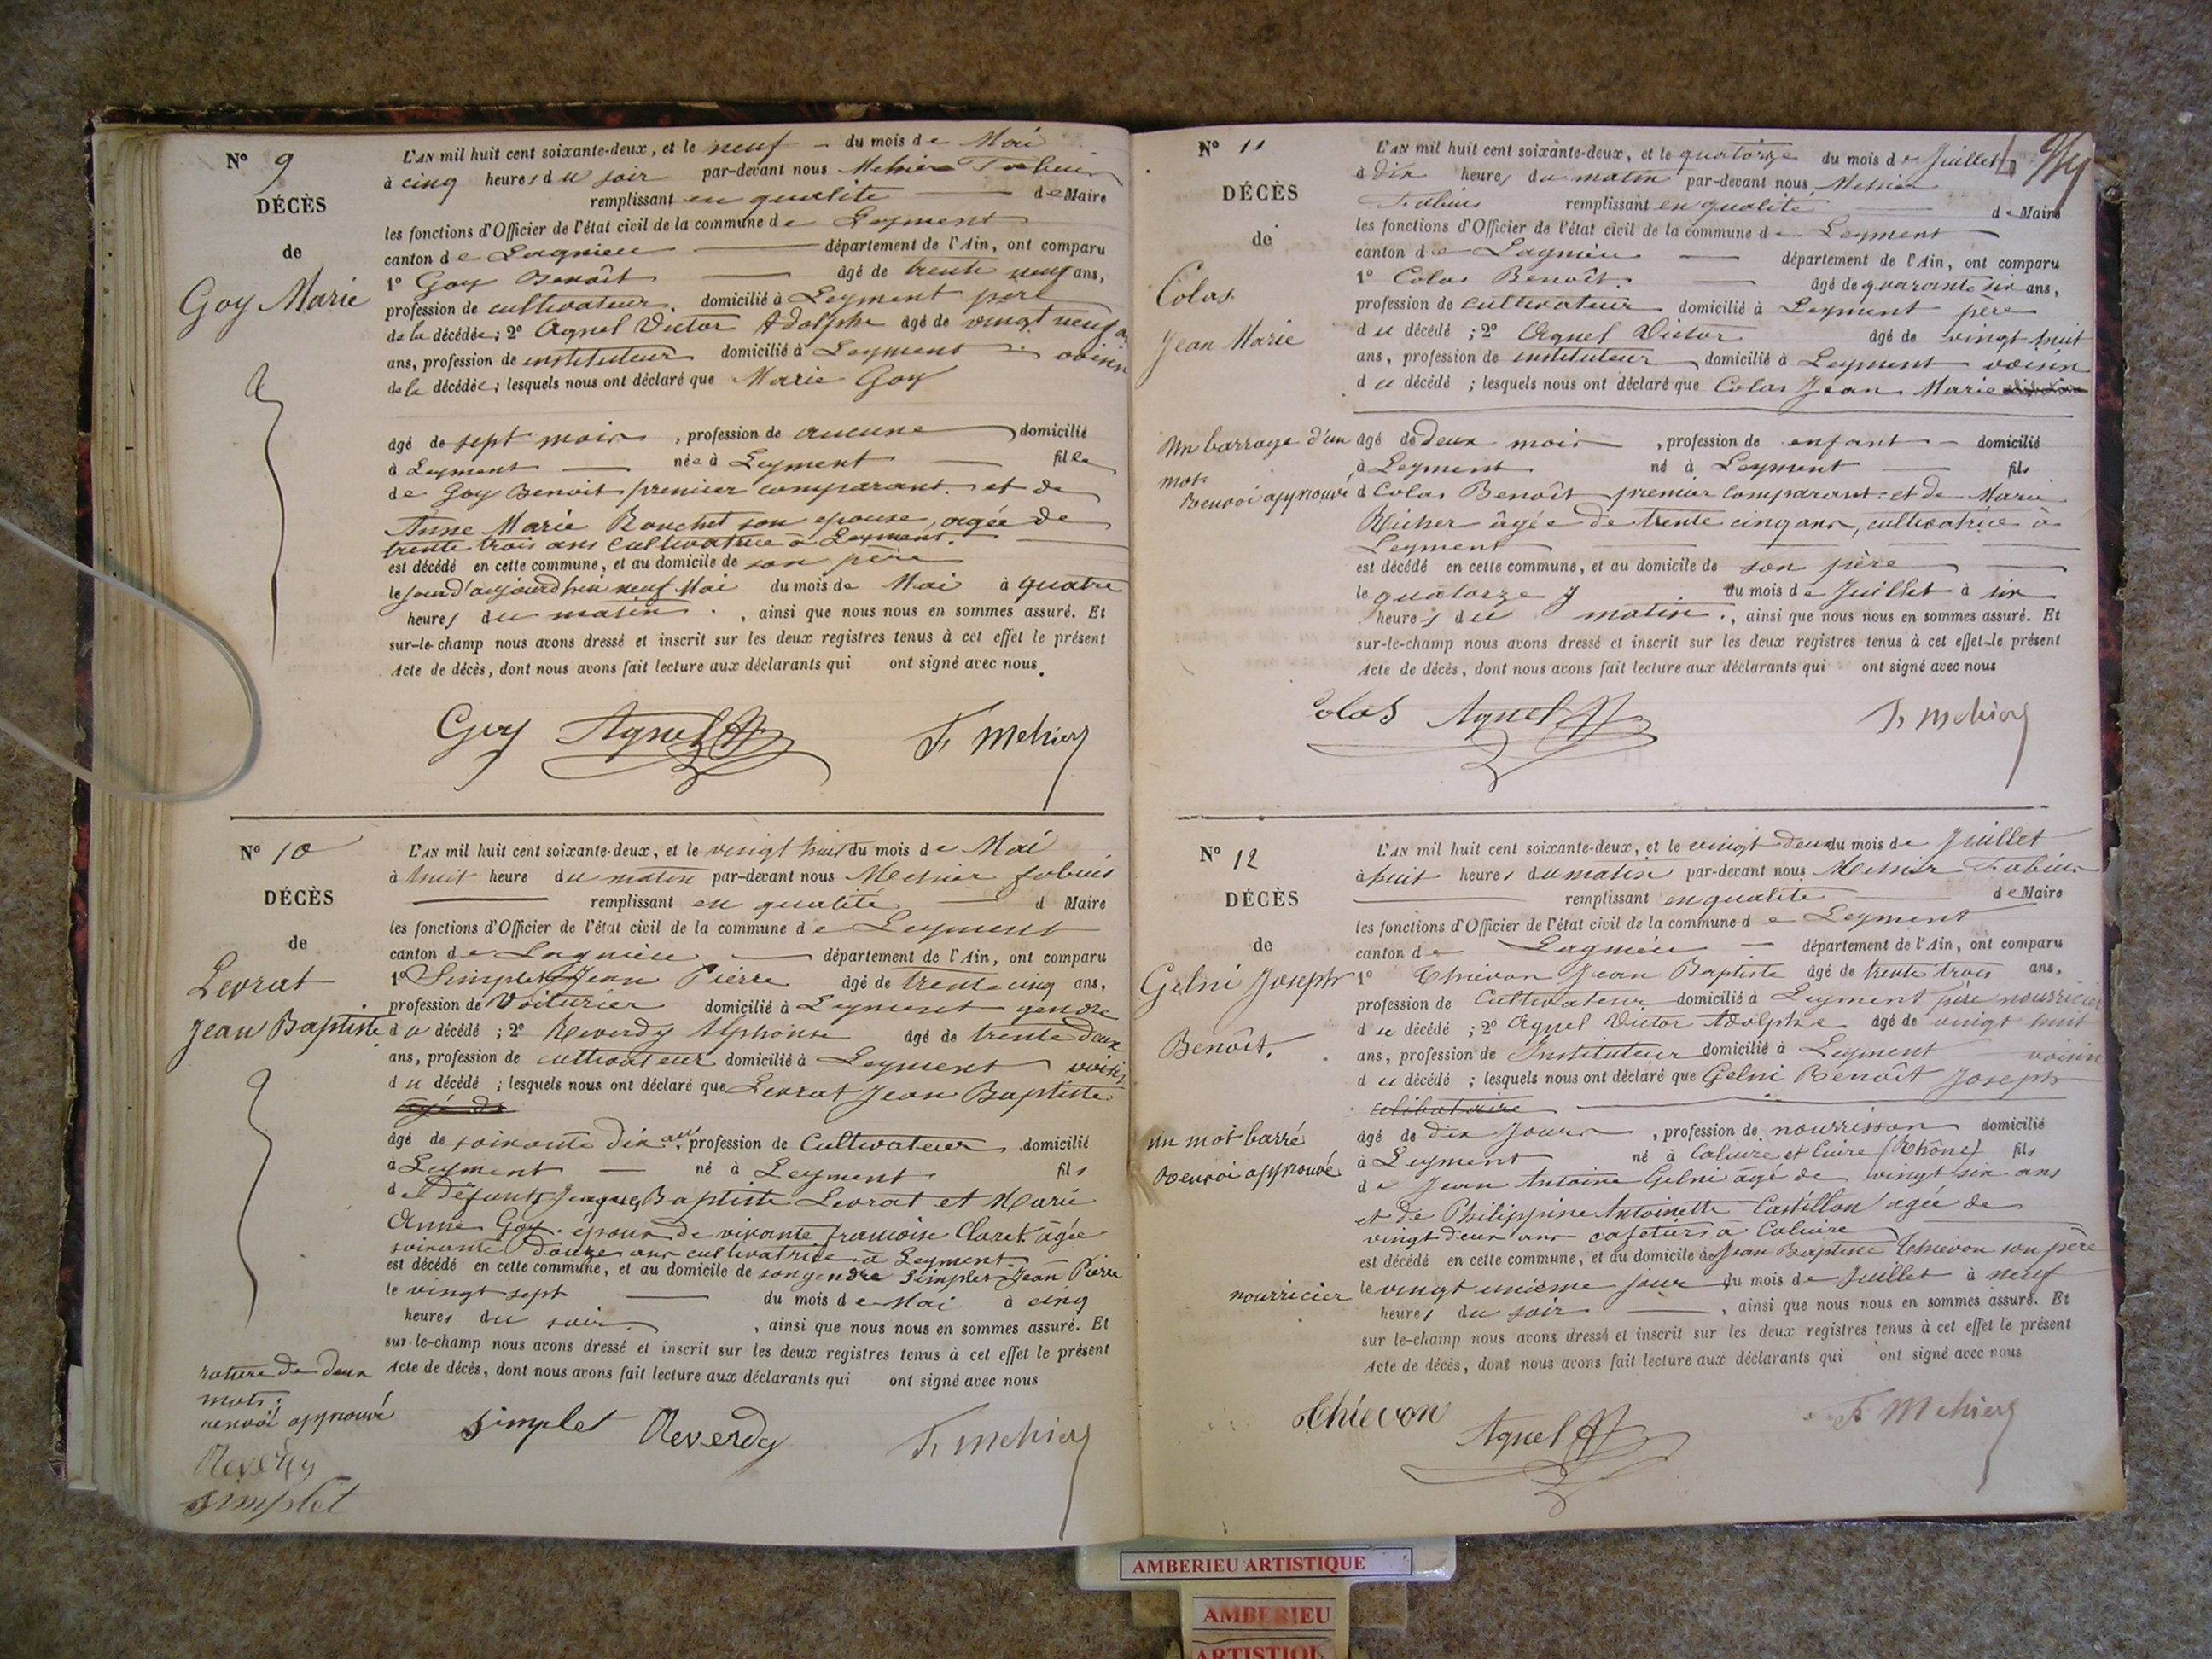 N° 9
DÉCÈS
de
Goy Marie
L'AN mil huit cent soixante-deux, et le neuf du mois de Mai
à cinq heures du soir par-devant nous Mehier Fabius
remplissant en qualité de Maire
les fonctions d'Officier de l'état civil de la commune de Leyment
canton de Lagnieu département de l'Ain, ont comparu
1° Goy Benoît âgé de trente neuf ans,
profession de cultivateur domicilié à Leyment père
de la décédée ; 2° Agnel Victor Adolphe âgé de vingt neuf
ans, profession de instituteur domicilié à Leyment voisin
de la décédée ; lesquels nous ont déclaré que Marie Goy
âgé de sept mois , profession de aucune domicilié
à Leyment née à Leyment fille
de Goy Benoit premier comparant et de
Anne Marie Bouchet son epouse, agée de
trente trois ans cultivatrice à Leyment.
est décédé en cette commune, et au domicile de son père
le jourd'aujourd'hui neuf Mai du mois de Mai à quatre
heures du matin , ainsi que nous nous en sommes assuré. Et
sur-le-champ nous avons dressé et inscrit sur les deux registres tenus à cet effet le présent
Acte de décès, dont nous avons fait lecture aux déclarants qui ont signé avec nous.
Goy Agnel F. Mehier
N° 10
DÉCÈS
de
Levrat
Jean Baptiste
L'AN mil huit cent soixante-deux, et le vingt huit du mois de Mai
à huit heure du matin par-devant nous Mehier fabius
remplissant en qualité d Maire
les fonctions d'Officier de l'état civil de la commune de Leyment
canton de Lagnieu département de l'Ain, ont comparu
1° Simplet Jean Pierre âgé de trente cinq ans,
profession de Voiturier domicilié à Leyment gendre
du décédé ; 2° Reverdy Alphonse âgé de trente deux
ans, profession de cultivateur domicilié à Leyment voisin
du décédé ; lesquels nous ont déclaré que Levrat Jean Baptiste
agé de
âgé de soixante dix ans, profession de Cultivateur domicilié
à Leyment né à Leyment fils
de défunts Jacques Baptiste Levrat et Marie
Anne Goy. époux de vivante françoise Claret âgée
soixante douze ans cultivatrice à Leyment.
est décédé en cette commune, et au domicile de son gendre Simplet Jean Pierre
le vingt sept du mois de Mai à cinq
heures du soir , ainsi que nous nous en sommes assuré. Et
sur-le-champ nous avons dressé et inscrit sur les deux registres tenus à cet effet le présent
Acte de décès, dont nous avons fait lecture aux déclarants qui ont signé avec nous
rature de deux
mots.
renvoi approuvé
Reverdy
Simplet
Simplet Reverdy F. Mehier
N° 11
DÉCÈS
de
Colas
Jean Marie
L'AN mil huit cent soixante-deux, et le quatorze du mois de Juillet
à dix heures du matin par-devant nous Mehier
Fabius remplissant en qualité de Maire
les fonctions d'Officier de l'état civil de la commune de Leyment
canton de Lagnieu département de l'Ain, ont comparu
1° Colas Benoît. âgé de quarante six ans,
profession de cultivateur domicilié à Leyment père
du décédé ; 2° Agnel Victor âgé de vingt huit
ans, profession de instituteur domicilié à Leyment voisin
du décédé ; lesquels nous ont déclaré que Colas Jean Marie
Un barrage d'un
mot.
Renvoi approuvé
âgé de deux mois , profession de enfant domicilié
à Leyment né à Leyment fils
d Colas Benoît premier comparant et de Marie
Richer âgée de trente cinq ans, cultivatrice à
Leyment
est décédé en cette commune, et au domicile de son père
le quatorze du mois de Juillet à six
heures du matin , ainsi que nous nous en sommes assuré. Et
sur-le-champ nous avons dressé et inscrit sur les deux registres tenus à cet effet le présent
Acte de décès, dont nous avons fait lecture aux déclarants qui ont signé avec nous
Colas Agnel F. Mehier
N° 12
DÉCÈS
de
Gelni Joseph
Benoît.
L'AN mil huit cent soixante-deux, et le vingt deux du mois de Juillet
à huit heures du matin par-devant nous Mehier Fabius
remplissant en qualité de Maire
les fonctions d'Officier de l'état civil de la commune de Leyment
canton de Lagnieu département de l'Ain, ont comparu
1° Thievon Jean Baptiste âgé de trente trois ans,
profession de Cultivateur domicilié à Leyment père nourricier
du décédé ; 2° Agnel Victor Adolphe âgé de vingt huit
ans, profession de Instituteur domicilié à Leyment voisin
du décédé ; lesquels nous ont déclaré que Gelni Benoît Joseph
celibataire
un mot barré
Renvoi approuvé
âgé de dix jours , profession de nourrisson domicilié
à Leyment né à Caluire et Cuire (Rhône) fils
de Jean Antoine Gelni âgé de vingt six ans
et de Philippine Antoinette Castillon agée de
vingt deux ans cafetiers a Caluire
est décédé en cette commune, et au domicile de Jean Baptiste Thievon son père
nourricier le vingt unième jour du mois de Juillet à neuf
heures du soir , ainsi que nous nous en sommes assuré. Et
sur le-champ nous avons dressé et inscrit sur les deux registres tenus à cet effet le présent
Acte de décès, dont nous avons fait lecture aux déclarants qui ont signé avec nous
Thievon Agnel F. Mehier
AMBERIEU ARTISTIQUE
AMBERIEU
ARTISTIQU